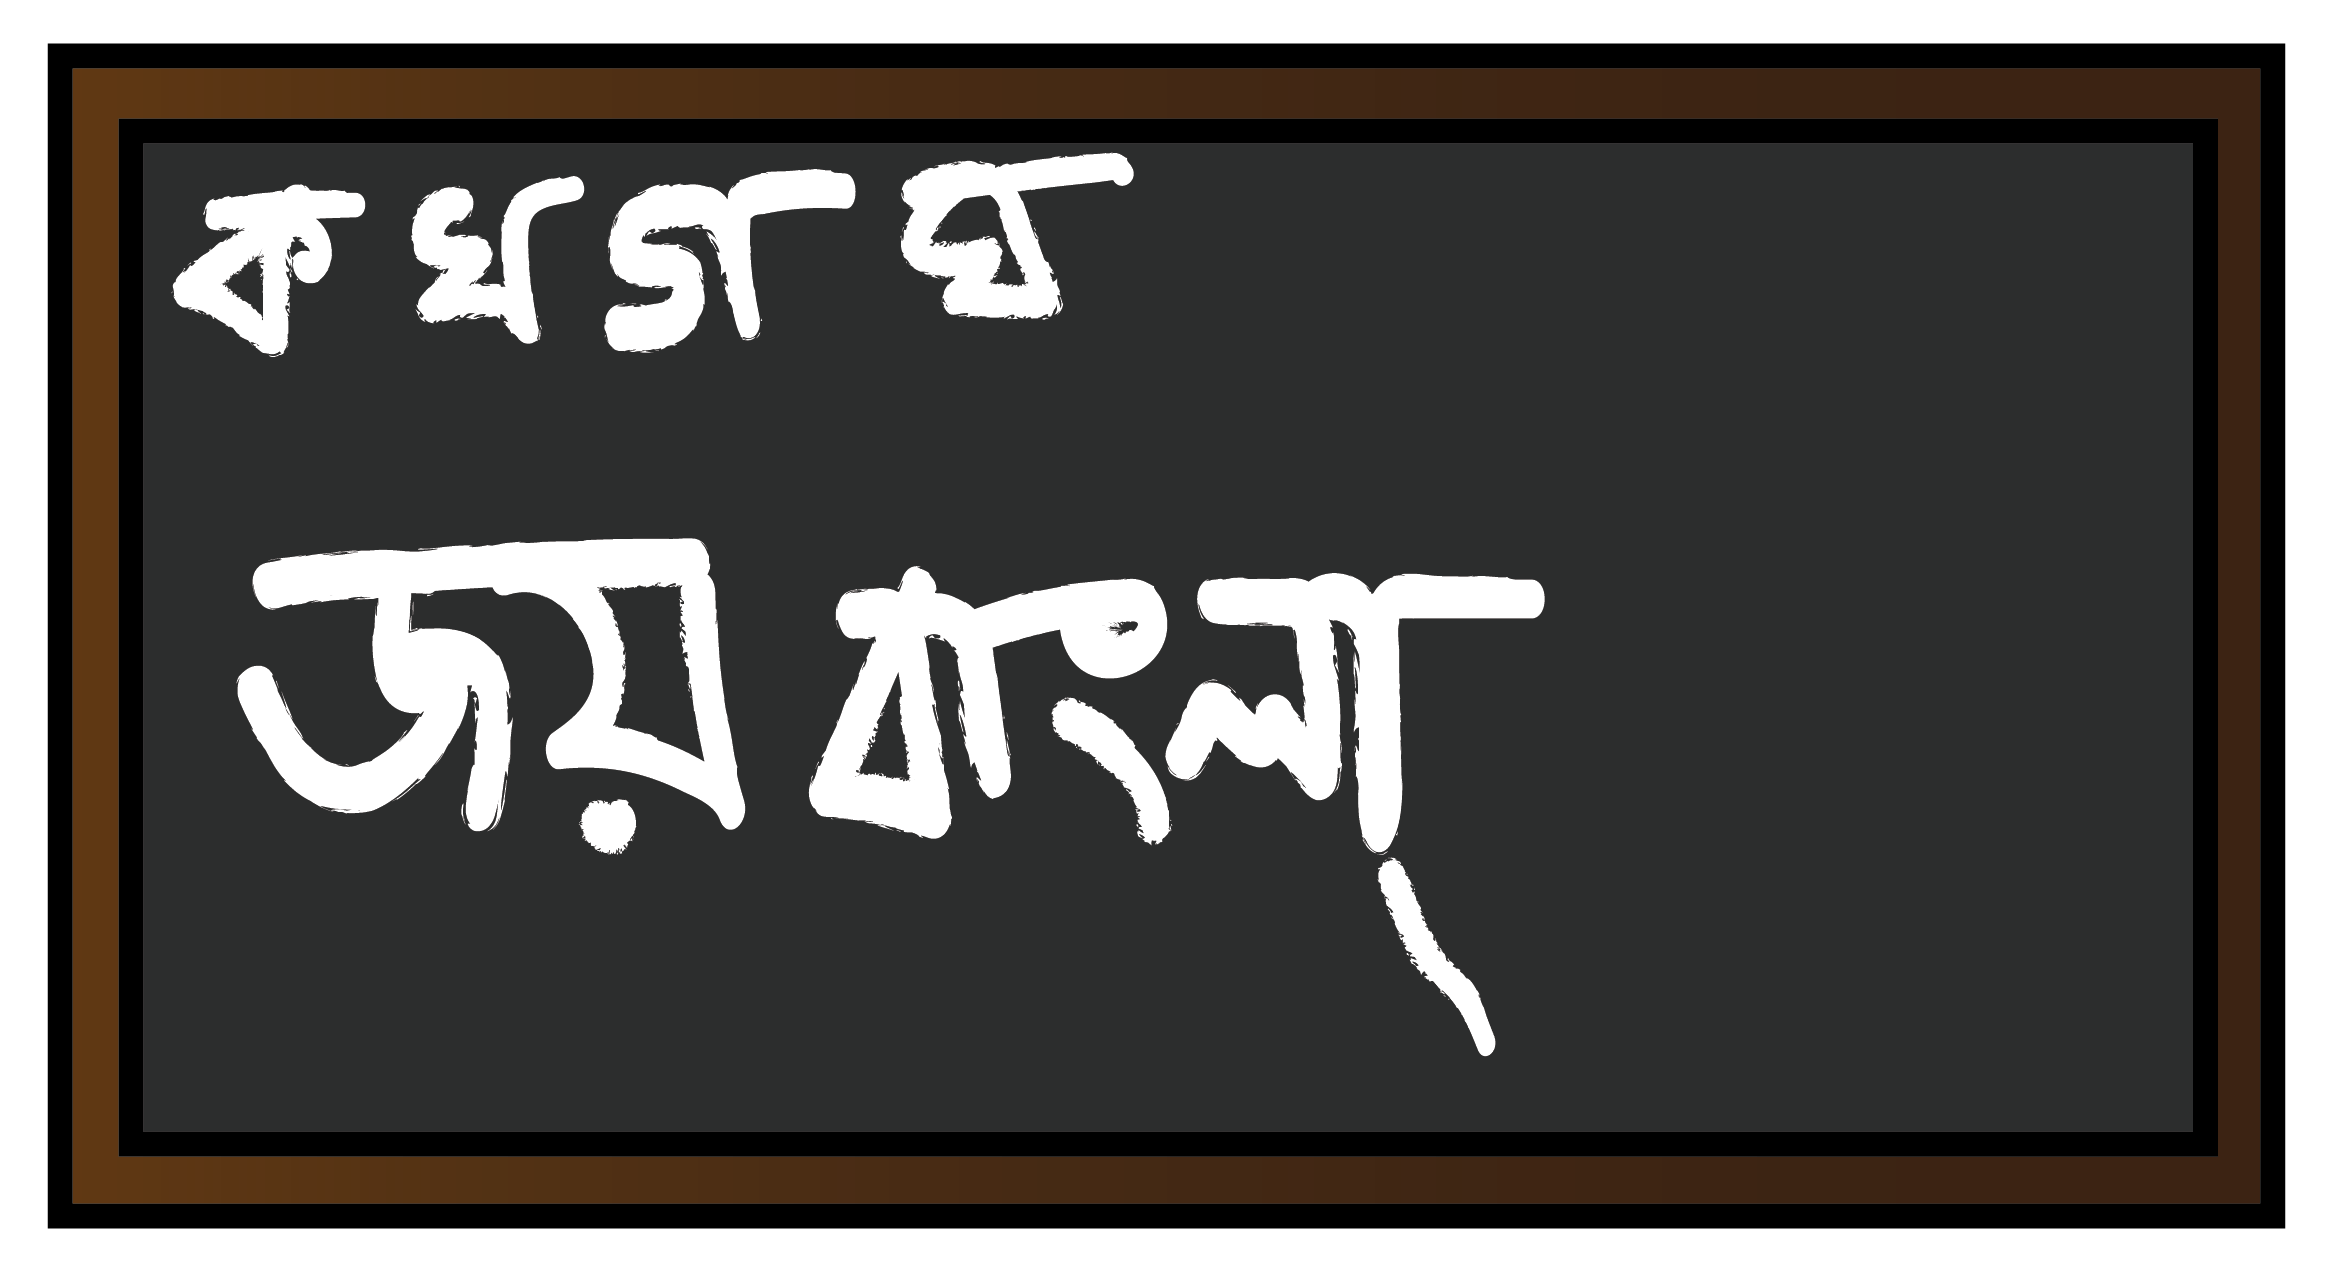 ক খ গ ঘ
জয় বাংলা